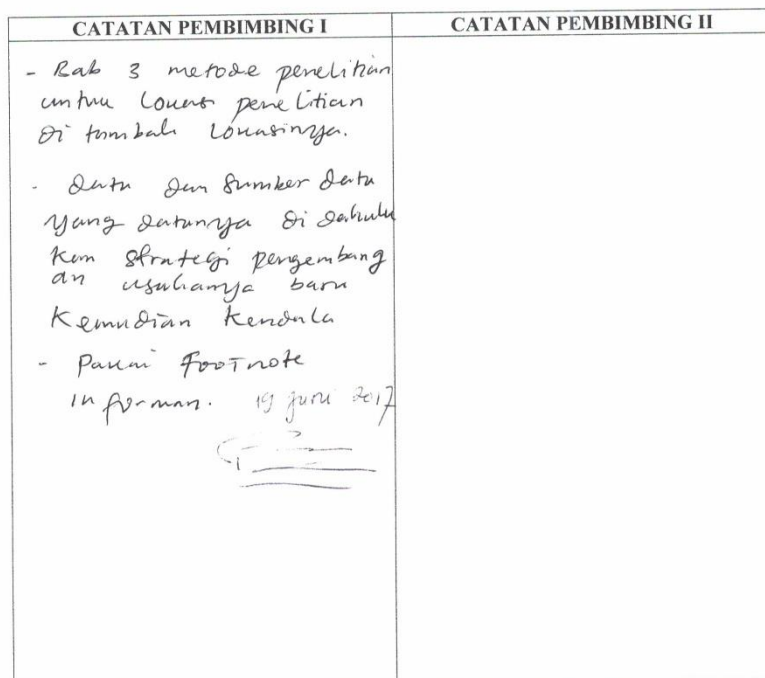 CATATAN PEMBIMBING I
CATATAN PEMBIMBING II
- Bab 3 metode penelitian
untuk lokasi penelitian
di tambah lokasinya.
- data dan sumber data
yang datanya di dahulu
kan strategi pengembang
an usahanya baru
kemudian kendala
- Pakai Footnote
informan. 19 juni 2017